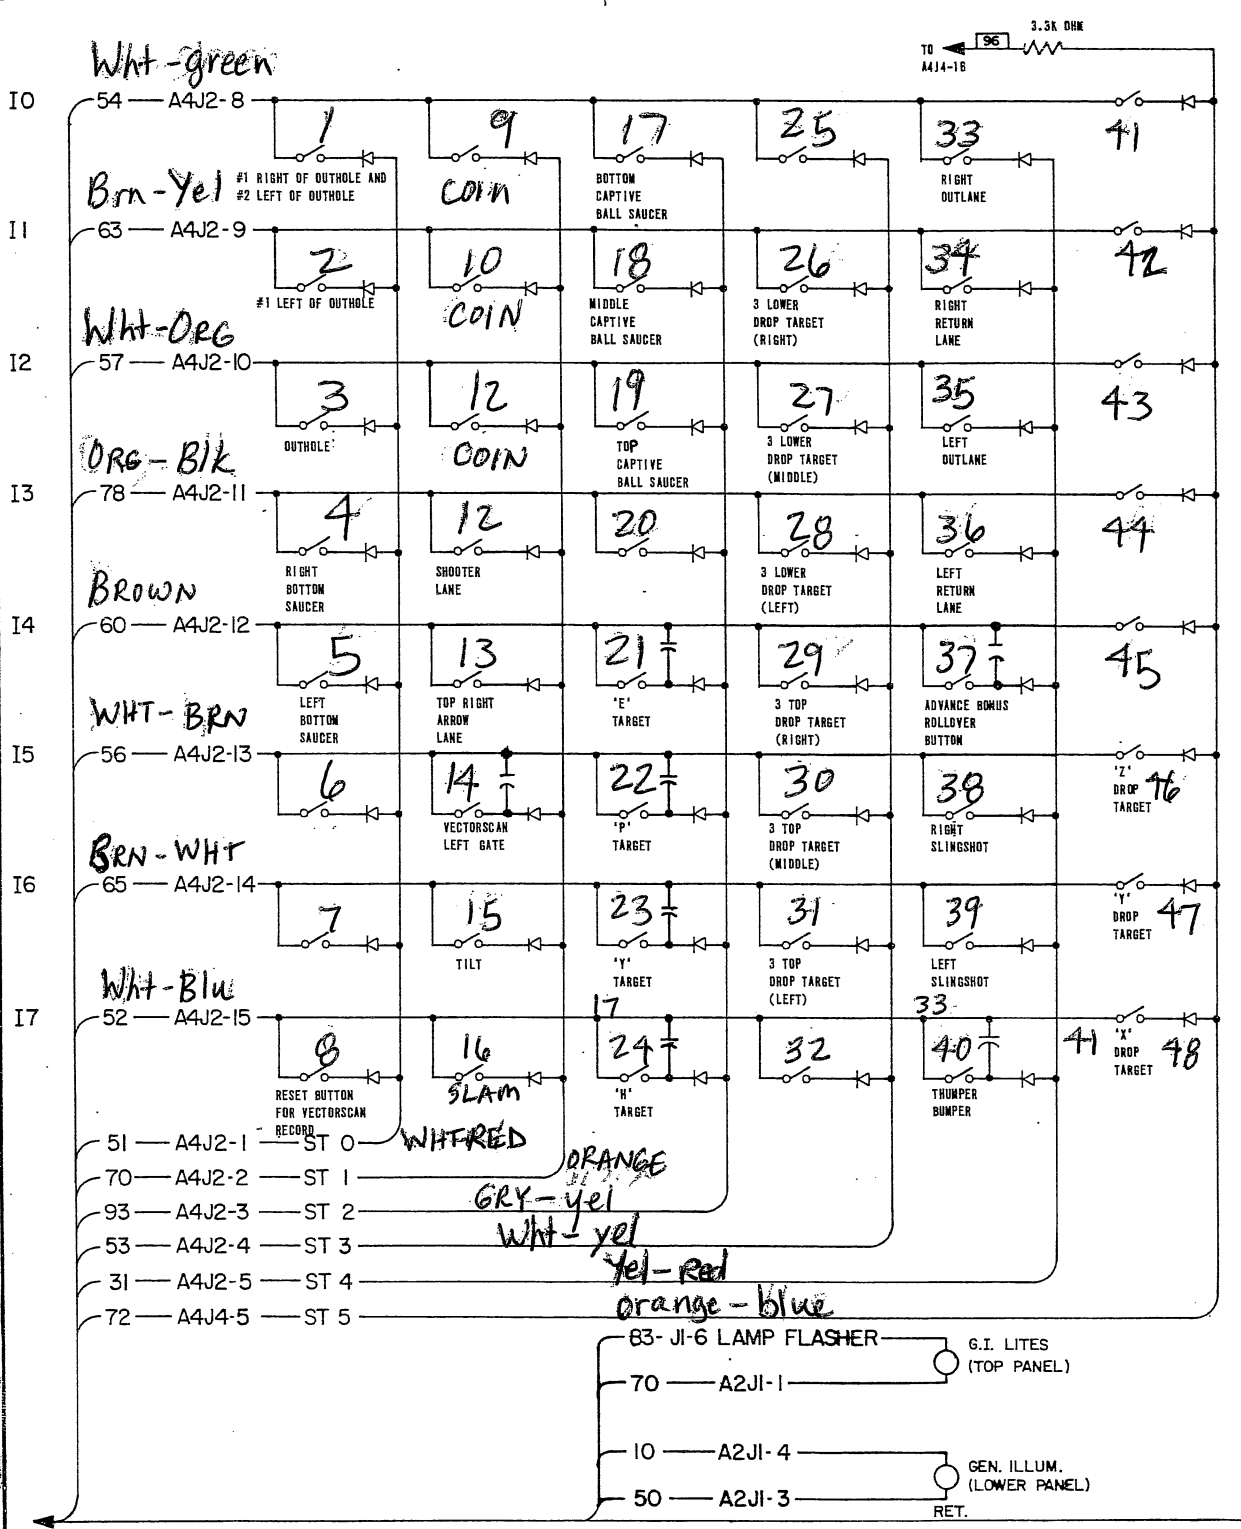 3.3K OHM
TO 96
A4J4-16
Wht-green
I0 54 A4J2-8
1 9 17 25 33 41
#1 RIGHT OF OUTHOLE AND
#2 LEFT OF OUTHOLE
COIN
BOTTOM
CAPTIVE
BALL SAUCER
RIGHT
OUTLANE
Brn-Yel
I1 63 A4J2-9
2 10 18 26 34 42
#1 LEFT OF OUTHOLE
COIN
MIDDLE
CAPTIVE
BALL SAUCER
3 LOWER
DROP TARGET
(RIGHT)
RIGHT
RETURN
LANE
Wht-ORG
I2 57 A4J2-10
3 12 19 27 35 43
OUTHOLE
COIN
TOP
CAPTIVE
BALL SAUCER
3 LOWER
DROP TARGET
(MIDDLE)
LEFT
OUTLANE
ORG-Blk
I3 78 A4J2-11
4 12 20 28 36 44
RIGHT
BOTTOM
SAUCER
SHOOTER
LANE
3 LOWER
DROP TARGET
(LEFT)
LEFT
RETURN
LANE
BROWN
I4 60 A4J2-12
5 13 21 29 37 45
LEFT
BOTTOM
SAUCER
TOP RIGHT
ARROW
LANE
'E'
TARGET
3 TOP
DROP TARGET
(RIGHT)
ADVANCE BONUS
ROLLOVER
BUTTON
WHT-BRN
I5 56 A4J2-13
6 14 22 30 38 46
VECTORSCAN
LEFT GATE
'P'
TARGET
3 TOP
DROP TARGET
(MIDDLE)
RIGHT
SLINGSHOT
'Z'
DROP
TARGET
BRN-WHT
I6 65 A4J2-14
7 15 23 31 39 47
TILT
'Y'
TARGET
3 TOP
DROP TARGET
(LEFT)
LEFT
SLINGSHOT
'Y'
DROP
TARGET
Wht-Blu
17 33 41
I7 52 A4J2-15
8 16 24 32 40 48
RESET BUTTON
FOR VECTORSCAN
RECORD
SLAM
'H'
TARGET
THUMPER
BUMPER
'X'
DROP
TARGET
51 A4J2-1 ST 0 WHT-RED
70 A4J2-2 ST 1 ORANGE
93 A4J2-3 ST 2 GRY-yel
53 A4J2-4 ST 3 Wht-yel
31 A4J2-5 ST 4 Yel-Red
72 A4J4-5 ST 5 orange-blue
83- J1-6 LAMP FLASHER
70 A2J1-1
G.I. LITES
(TOP PANEL)
10 A2J1-4
50 A2J1-3
GEN. ILLUM.
(LOWER PANEL)
RET.